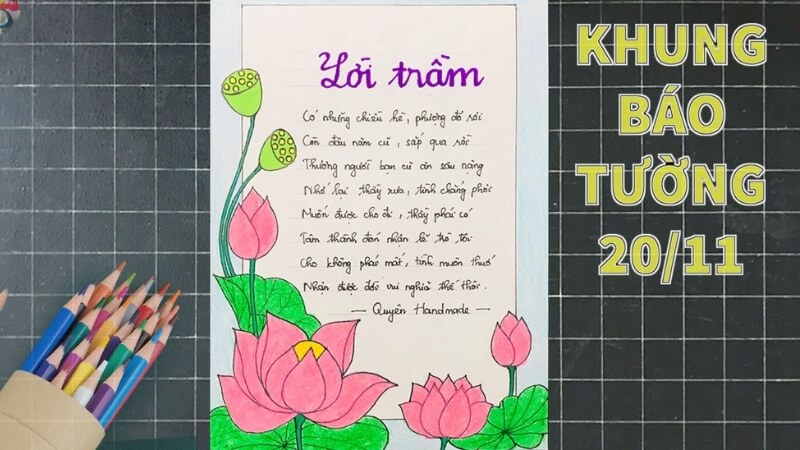 Lời trầm
Có những chiều hè, phượng đỏ rơi
Còn đâu năm cũ, sắp qua rồi
Thương người bạn cũ ơn sâu nặng
Nhớ lại thầy xưa, tình chẳng phôi
Muốn được cho đi, thầy phải có
Tâm thành đón nhận lẽ tôi
Cho không phải mất, tình muôn thuở
Nhận được đời vui nghĩa thế thôi.
— Quyên Handmade —
KHUNG
BÁO
TƯỜNG
20/11